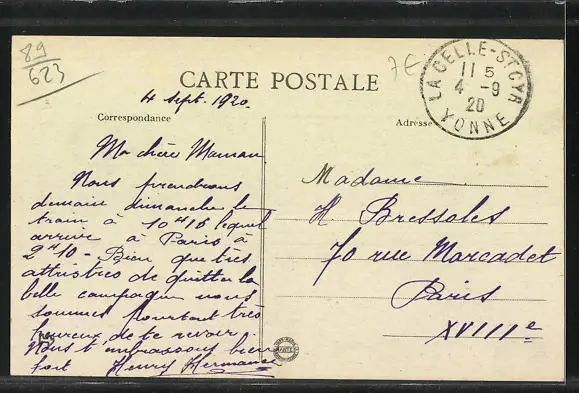 89
623
7€
CARTE POSTALE
LA CELLE-ST CYR
11 5
4 -9
20
YONNE
4 Sept. 1920.
Correspondance
Adresse
Ma chère Maman
Nous prendrons
demain dimanche le
train à 10H16 lequel
arrive à Paris à
2H10 - Bien que très
attristées de quitter la
belle campagne nous
sommes pourtant très
heureux de te revoir.
Nous t'embrassons bien
fort Henry Hermance
Madame
H Bressoles
70 rue Marcadet
Paris
XVIIIe